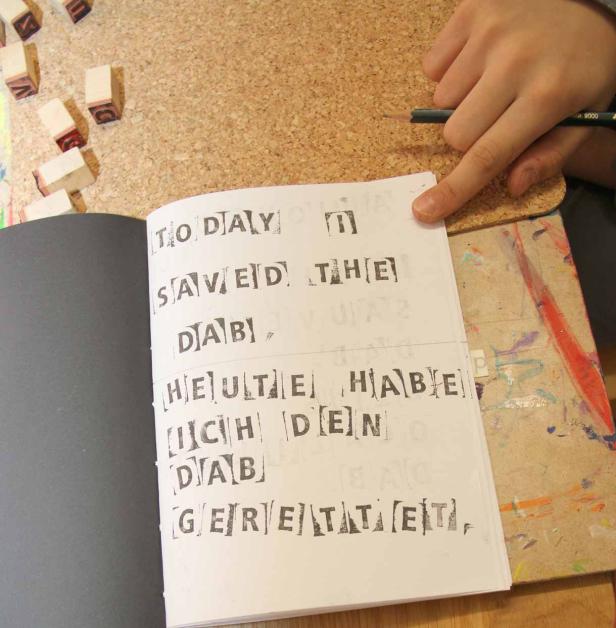 TODAY I
SAVED THE
DAB.
HEUTE HABE
ICH DEN
DAB
GERETTET.